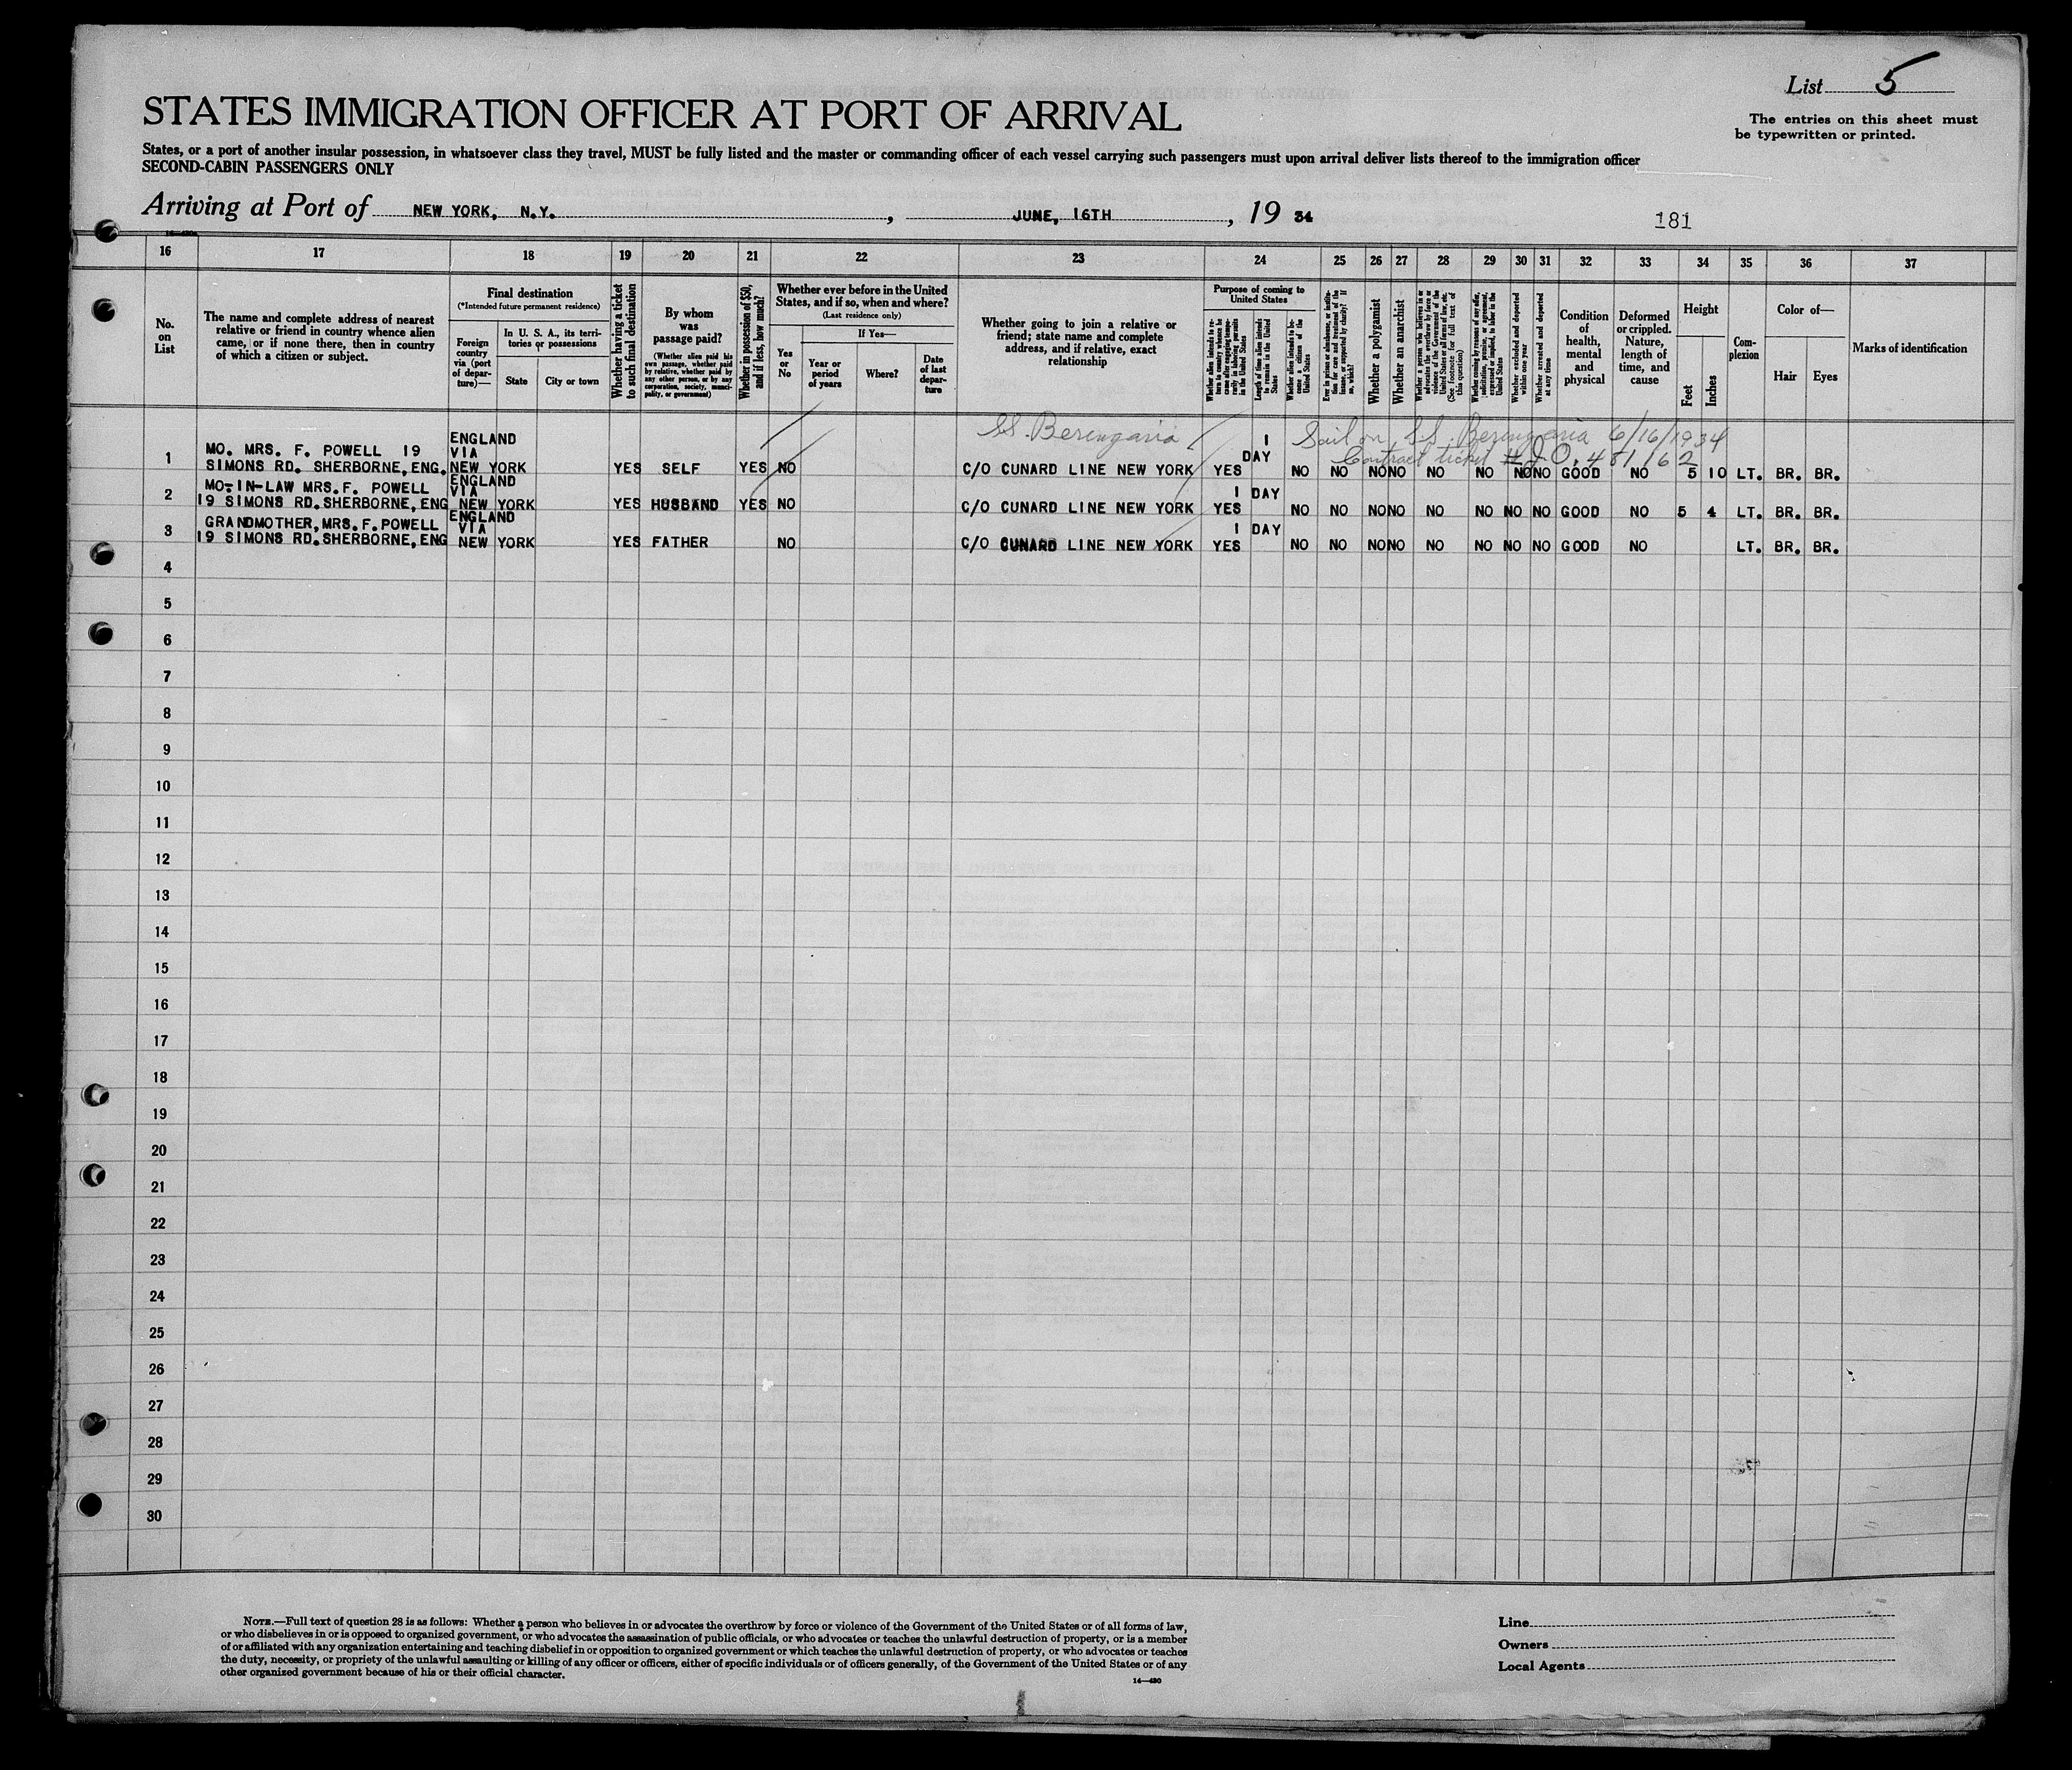 List 5
STATES IMMIGRATION OFFICER AT PORT OF ARRIVAL
The entries on this sheet must
be typewritten or printed.
States, or a port of another insular possession, in whatsoever class they travel, MUST be fully listed and the master or commanding officer of each vessel carrying such passengers must upon arrival deliver lists thereof to the immigration officer
SECOND-CABIN PASSENGERS ONLY
Arriving at Port of NEW YORK, N.Y. , JUNE, 16TH , 19 34
181
16 17 18 19 20 21 22 23 24 25 26 27 28 29 30 31 32 33 34 35 36 37
No.
on
List
The name and complete address of nearest
relative or friend in country whence alien
came, or if none there, then in country
of which a citizen or subject.
Final destination
(*Intended future permanent residence)
Foreign
country
via (port
of depar-
ture)—
In U. S. A., its terri-
tories or possessions
State
City or town
Whether having a ticket
to such final destination
By whom
was
passage paid?
(Whether alien paid his
own passage, whether paid
by relative, whether paid by
any other person, or by any
corporation, society, munici-
pality, or government)
Whether in possession of $50,
and if less, how much?
Whether ever before in the United
States, and if so, when and where?
(Last residence only)
Yes
or
No
If Yes—
Year or
period
of years
Where?
Date
of last
depar-
ture
Whether going to join a relative or
friend; state name and complete
address, and if relative, exact
relationship
Purpose of coming to
United States
Length of time alien intends
to remain in the United
States
Whether alien intends to be-
come a citizen of the
United States
Whether a polygamist
Whether an anarchist
Whether excluded and deported
within one year
Whether arrested and deported
at any time
Condition
of
health,
mental
and
physical
Deformed
or crippled.
Nature,
length of
time, and
cause
Height
Feet
Inches
Com-
plexion
Color of—
Hair
Eyes
Marks of identification
SS. Berengaria
Sail on S.S. Berengaria 6/16/1934
Contract ticket
1 MO. MRS. F. POWELL 19 ENGLAND VIA 1 DAY
SIMONS RD. SHERBORNE, ENG. NEW YORK YES SELF YES NO C/O CUNARD LINE NEW YORK YES NO NO NO NO NO NO NO NO GOOD NO 5 10 LT. BR. BR.
2 MO-IN-LAW MRS. F. POWELL ENGLAND VIA 1 DAY
19 SIMONS RD. SHERBORNE, ENG NEW YORK YES HUSBAND YES NO C/O CUNARD LINE NEW YORK YES NO NO NO NO NO NO NO NO GOOD NO 5 4 LT. BR. BR.
3 GRANDMOTHER, MRS. F. POWELL ENGLAND VIA 1 DAY
19 SIMONS RD. SHERBORNE, ENG NEW YORK YES FATHER NO C/O CUNARD LINE NEW YORK YES NO NO NO NO NO NO NO NO GOOD NO LT. BR. BR.
4
5
6
7
8
9
10
11
12
13
14
15
16
17
18
19
20
21
22
23
24
25
26
27
28
29
30
NOTE.—Full text of question 28 is as follows: Whether a person who believes in or advocates the overthrow by force or violence of the Government of the United States or of all forms of law,
or who disbelieves in or is opposed to organized government, or who advocates the assassination of public officials, or who advocates or teaches the unlawful destruction of property, or is a member
of or affiliated with any organization entertaining and teaching disbelief in or opposition to organized government or which teaches the unlawful destruction of property, or who advocates or teaches
the duty, necessity, or propriety of the unlawful assaulting or killing of any officer or officers, either of specific individuals or of officers generally, of the Government of the United States or of any
other organized government because of his or their official character.
14—490
Line
Owners
Local Agents